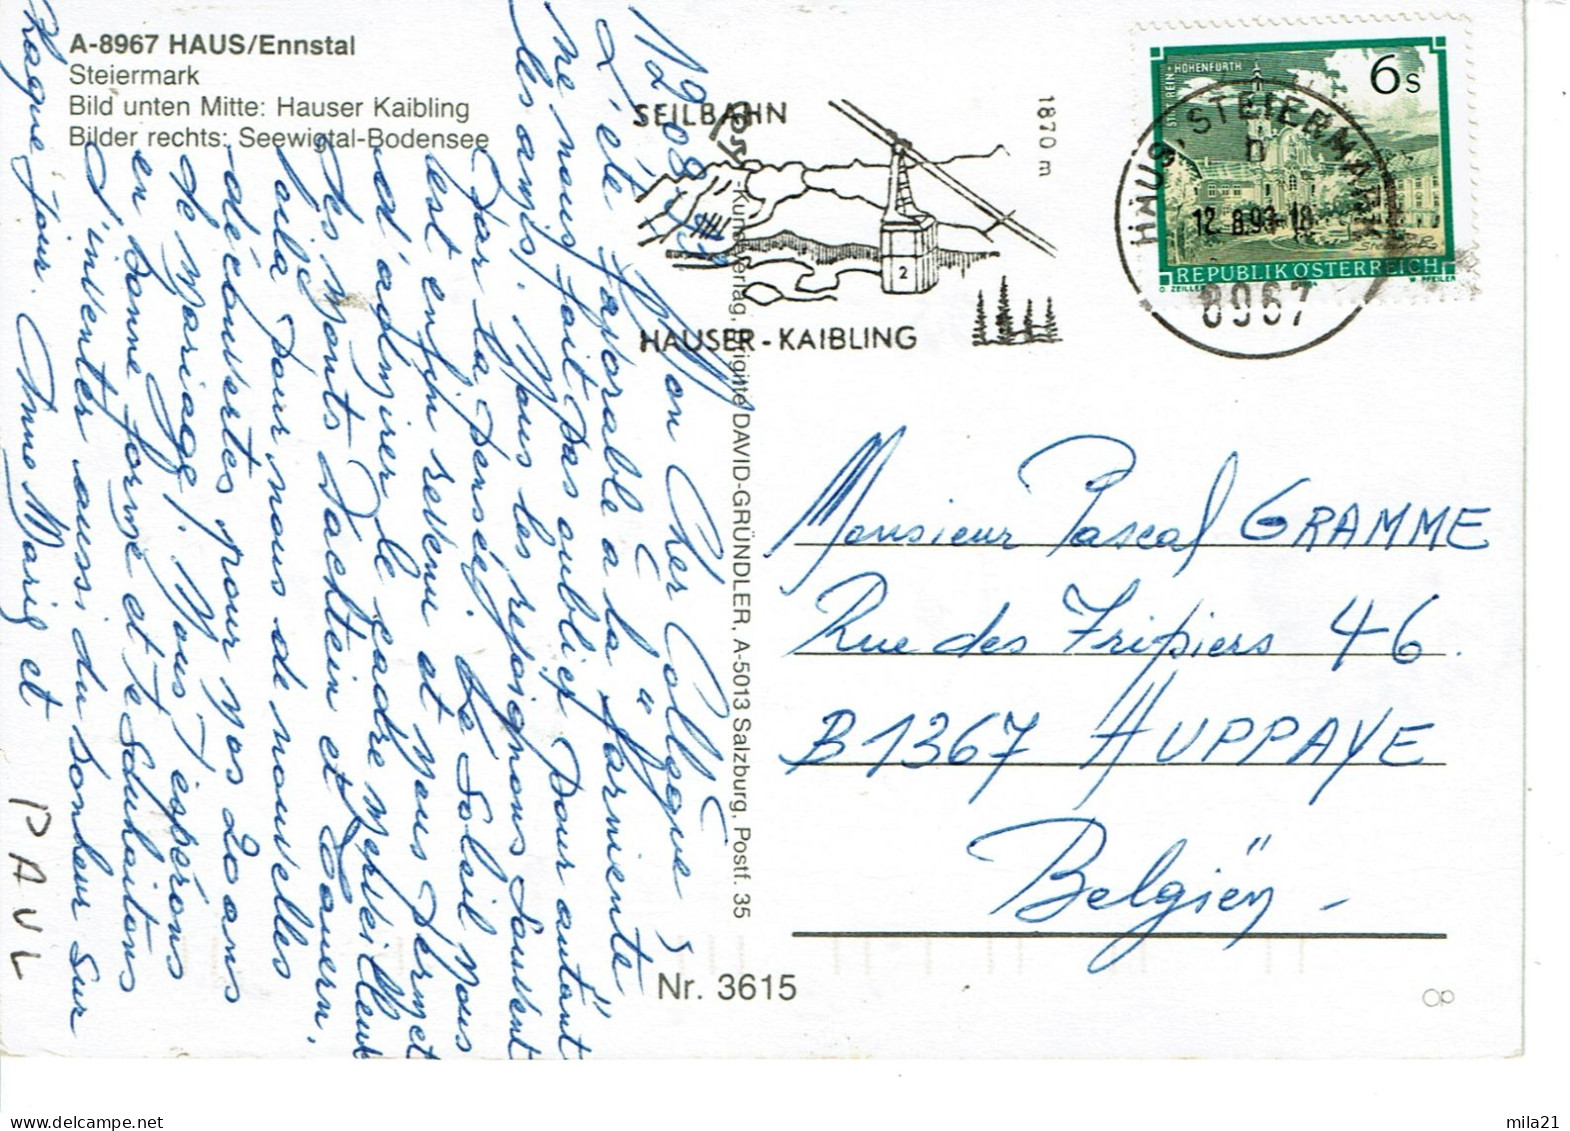 A-8967 HAUS/Ennstal
Steiermark
Bild unten Mitte: Hauser Kaibling
Bilder rechts: Seewigtal-Bodensee
SEILBAHN
1870 m
2
HAUSER-KAIBLING
STIFT REIN-HOHENFURTH
6s
REPUBLIK ÖSTERREICH
HAUS, STEIERMARK
b
12. 8.93-18
8967
Kunstverlag, Brigitte DAVID-GRÜNDLER, A-5013 Salzburg, Postf. 35
Nr. 3615
Mon Cher Collègue,
L'été favorable à la "farniente"
ne nous fait pas oublier pour autant
les amis. Nous les rejoignons souvent
par la pensée. Le Soleil nous
est enfin revenu et nous permet
d'admirer le cadre merveilleux
des Monts Dachtein et Tauern.
Voilà pour nous de nouvelles
découvertes pour nos 20 ans
de Mariage! Nous t'espérons
en bonne forme et te souhaitons
d'inventer aussi du bonheur sur
chaque jour. Anne Marie et
PAUL
Monsieur Pascal GRAMME
Rue des Fripiers 46.
B1367 AUPPAYE
Belgiën -
mila21